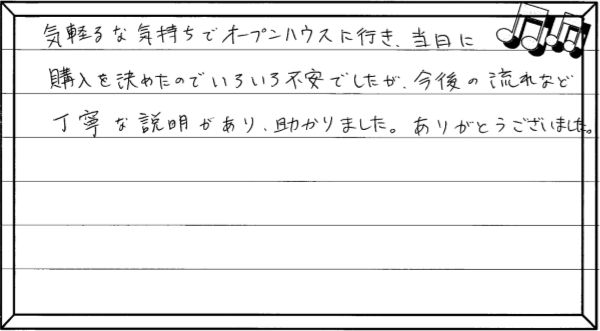 気軽るな気持ちでオープンハウスに行き、当日に
購入を決めたのでいろいろ不安でしたが、今後の流れなど
丁寧な説明があり、助かりました。ありがとうございました。